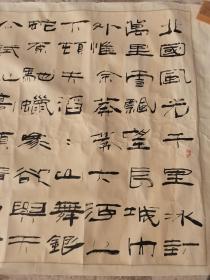 北國風光千里冰封
萬里雪飄望長城内
外惟余莽〻大河上
下頓失滔〻山舞銀
蛇原馳蠟象欲與天
公試比高